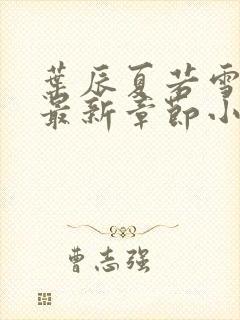 葉辰夏若雪
最新章節小
曹志强